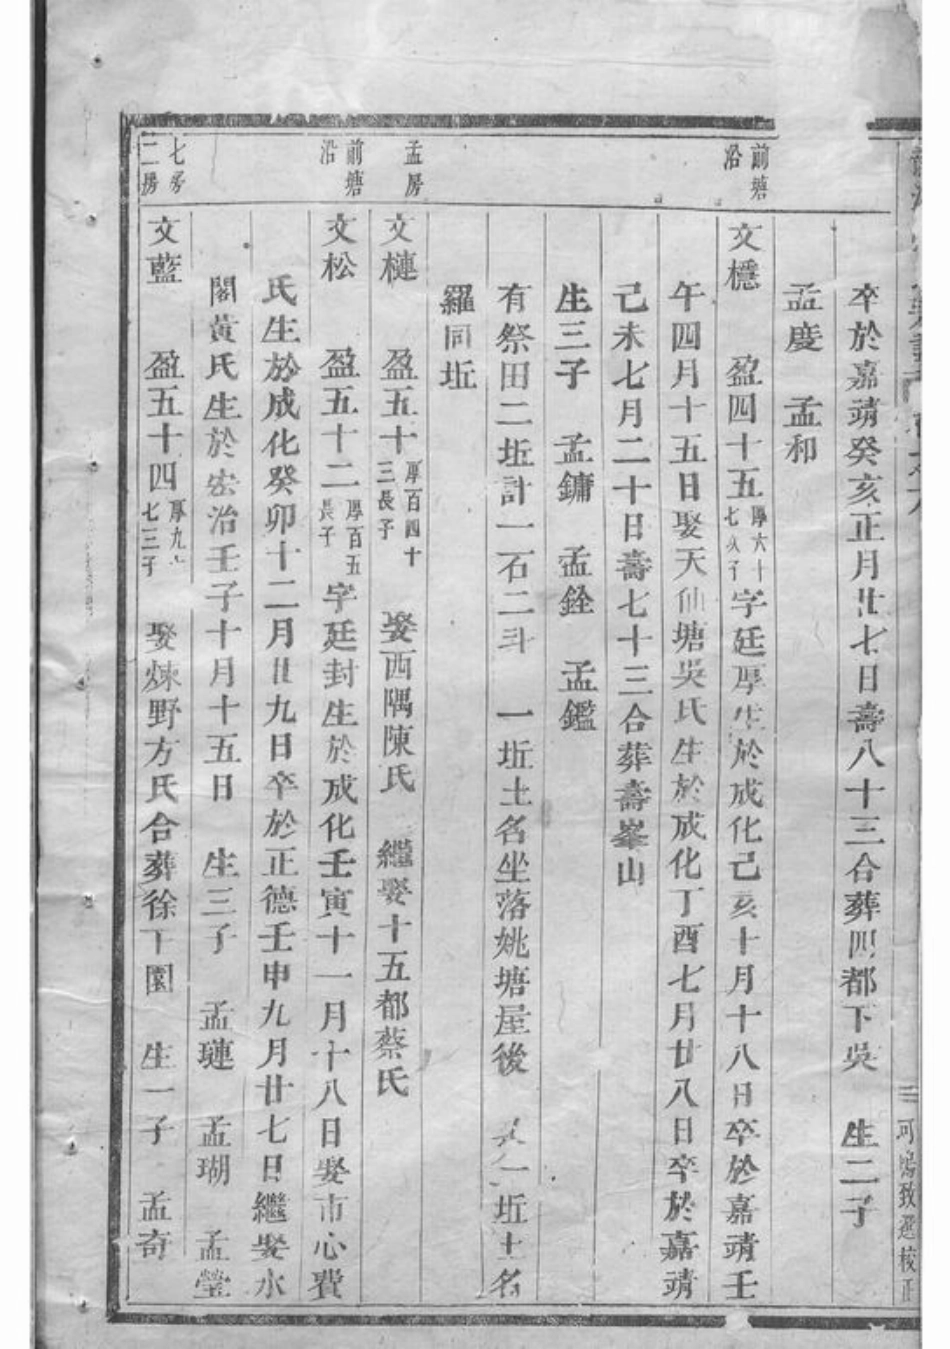 卒於嘉靖癸亥正月廿七日壽八十三合葬四都下吳 生二子
孟度 孟和
前塘沿
文檼 盈四十五厚六十七次子字廷厚生於成化己亥十月十八日卒於嘉靖壬
午四月十五日娶天仙塘吳氏生於成化丁酉七月廿八日卒於嘉靖
己未七月二十日壽七十三合葬壽峯山
生三子 孟鏞 孟銓 孟鑑
有祭田二坵計一石二斗 一坵土名坐落姚塘屋後 又一坵土名
羅同坵
孟房
文槤 盈五十厚百四十三長子 娶西隅陳氏 繼娶十五都蔡氏
前塘沿
文松 盈五十二厚百五長子字廷封生於成化壬寅十一月十八日娶市心費
氏生於成化癸卯十二月廿九日卒於正德壬申九月廿七日繼娶水
閣黃氏生於宏治壬子十月十五日 生三子 孟璉 孟瑚 孟瑩
七房二房
文藍 盈五十四厚九七三子 娶煉野方氏合葬徐下園 生一子 孟奇
可鳴致選校正